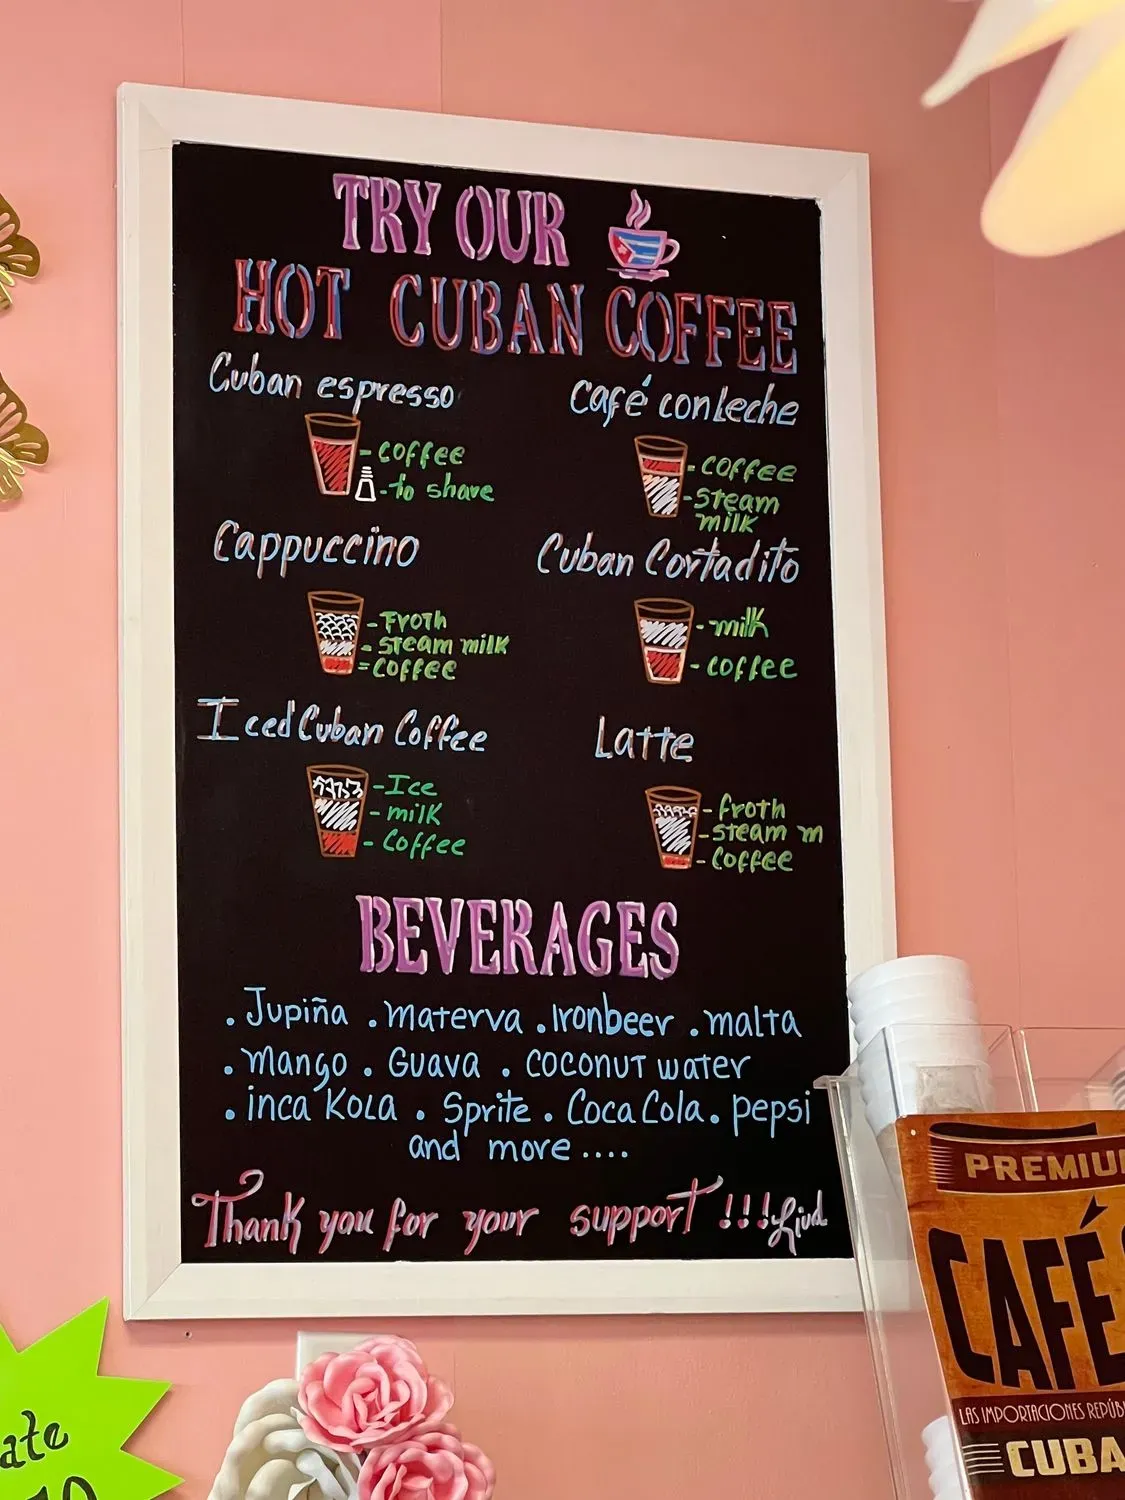 TRY OUR
HOT CUBAN COFFEE
Cuban espresso
- coffee
- to share
Café con Leche
- coffee
- steam
milk
Cappuccino
- Froth
- steam milk
= coffee
Cuban Cortadito
- milk
- coffee
Iced Cuban Coffee
- Ice
- milk
- Coffee
Latte
- froth
- steam m
- coffee
BEVERAGES
. Jupiña . materva . Ironbeer . malta
. mango . Guava . coconut water
. inca Kola . Sprite . Coca Cola . pepsi
and more ....
Thank you for your support !!!
PREMIU
CAFÉ
LAS IMPORTACIONES REPÚB
CUBA
ate